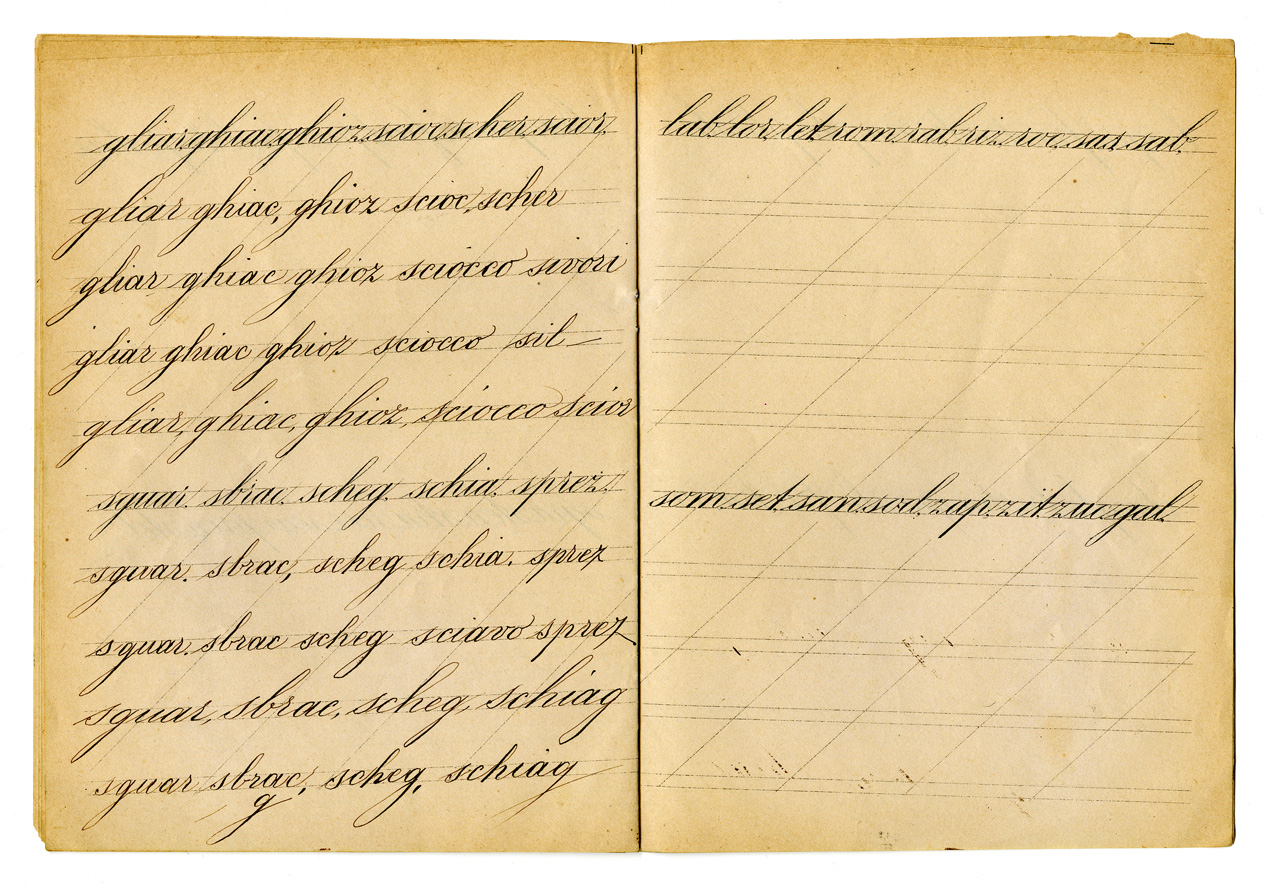 gliar ghiac ghioz scioc scher scior.
gliar ghiac, ghioz scioc, scher
gliar ghiac ghioz sciocco sivori
gliar ghiac ghioz sciocco sil
gliar, ghiac, ghioz, sciocco scior
sguar. sbrac. scheg. schia. sprez.
sguar. sbrac, scheg schia. sprez
sguar. sbrac scheg sciavo sprez
sguar, sbrac, scheg, schiag
sguar sbrac, scheg, schiag
g
lab lor. let rom. rab riz. roc. sar. sab.
som. set. san sod. zap. zit zuc gal